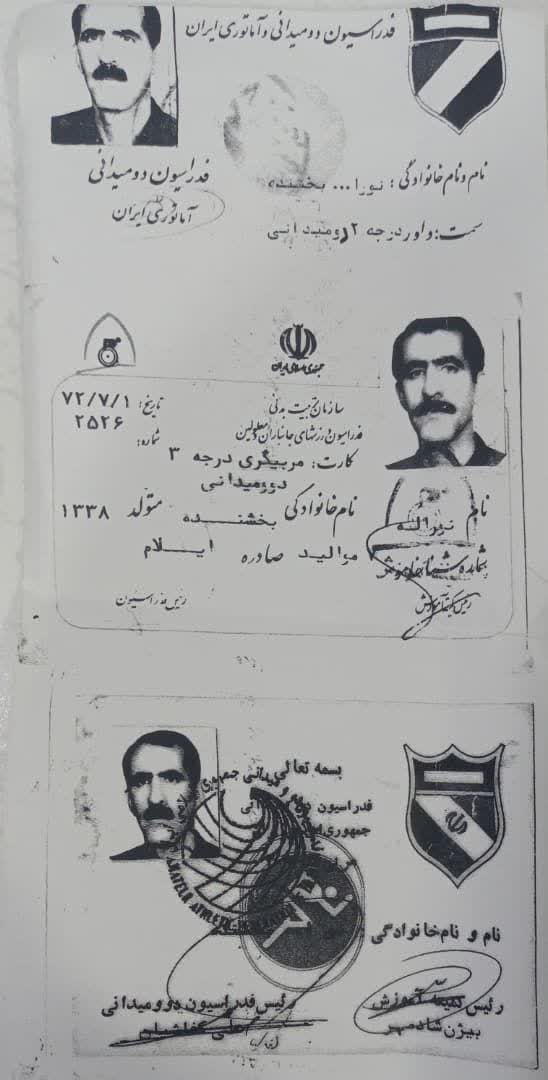 فدراسیون دو میدانی و آماتوری ایران
فدراسیون دو میدانی
آماتوری ایران
نام و نام خانوادگی: نورا... بخشنده
سمت: داور درجه ۲ دومیدانی
جمهوری اسلامی ایران
تاریخ: ۷۲/۷/۱
شماره: ۲۵۲۶
سازمان تربیت بدنی
فدراسیون ورزشهای جانبازان و معلولین
کارت: مربیگری درجه ۳
دوومیدانی
نام نوراله نام خانوادگی بخشنده متولد ۱۳۳۸
شماره شناسنامه موالید صادره ایلام
رئیس کمیته آموزش
رئیس فدراسیون
بسمه تعالی
فدراسیون دو
جمهوری
نام و نام خانوادگی
رئیس کمیته آموزش
بیژن شادمهر
رئیس فدراسیون دوومیدانی